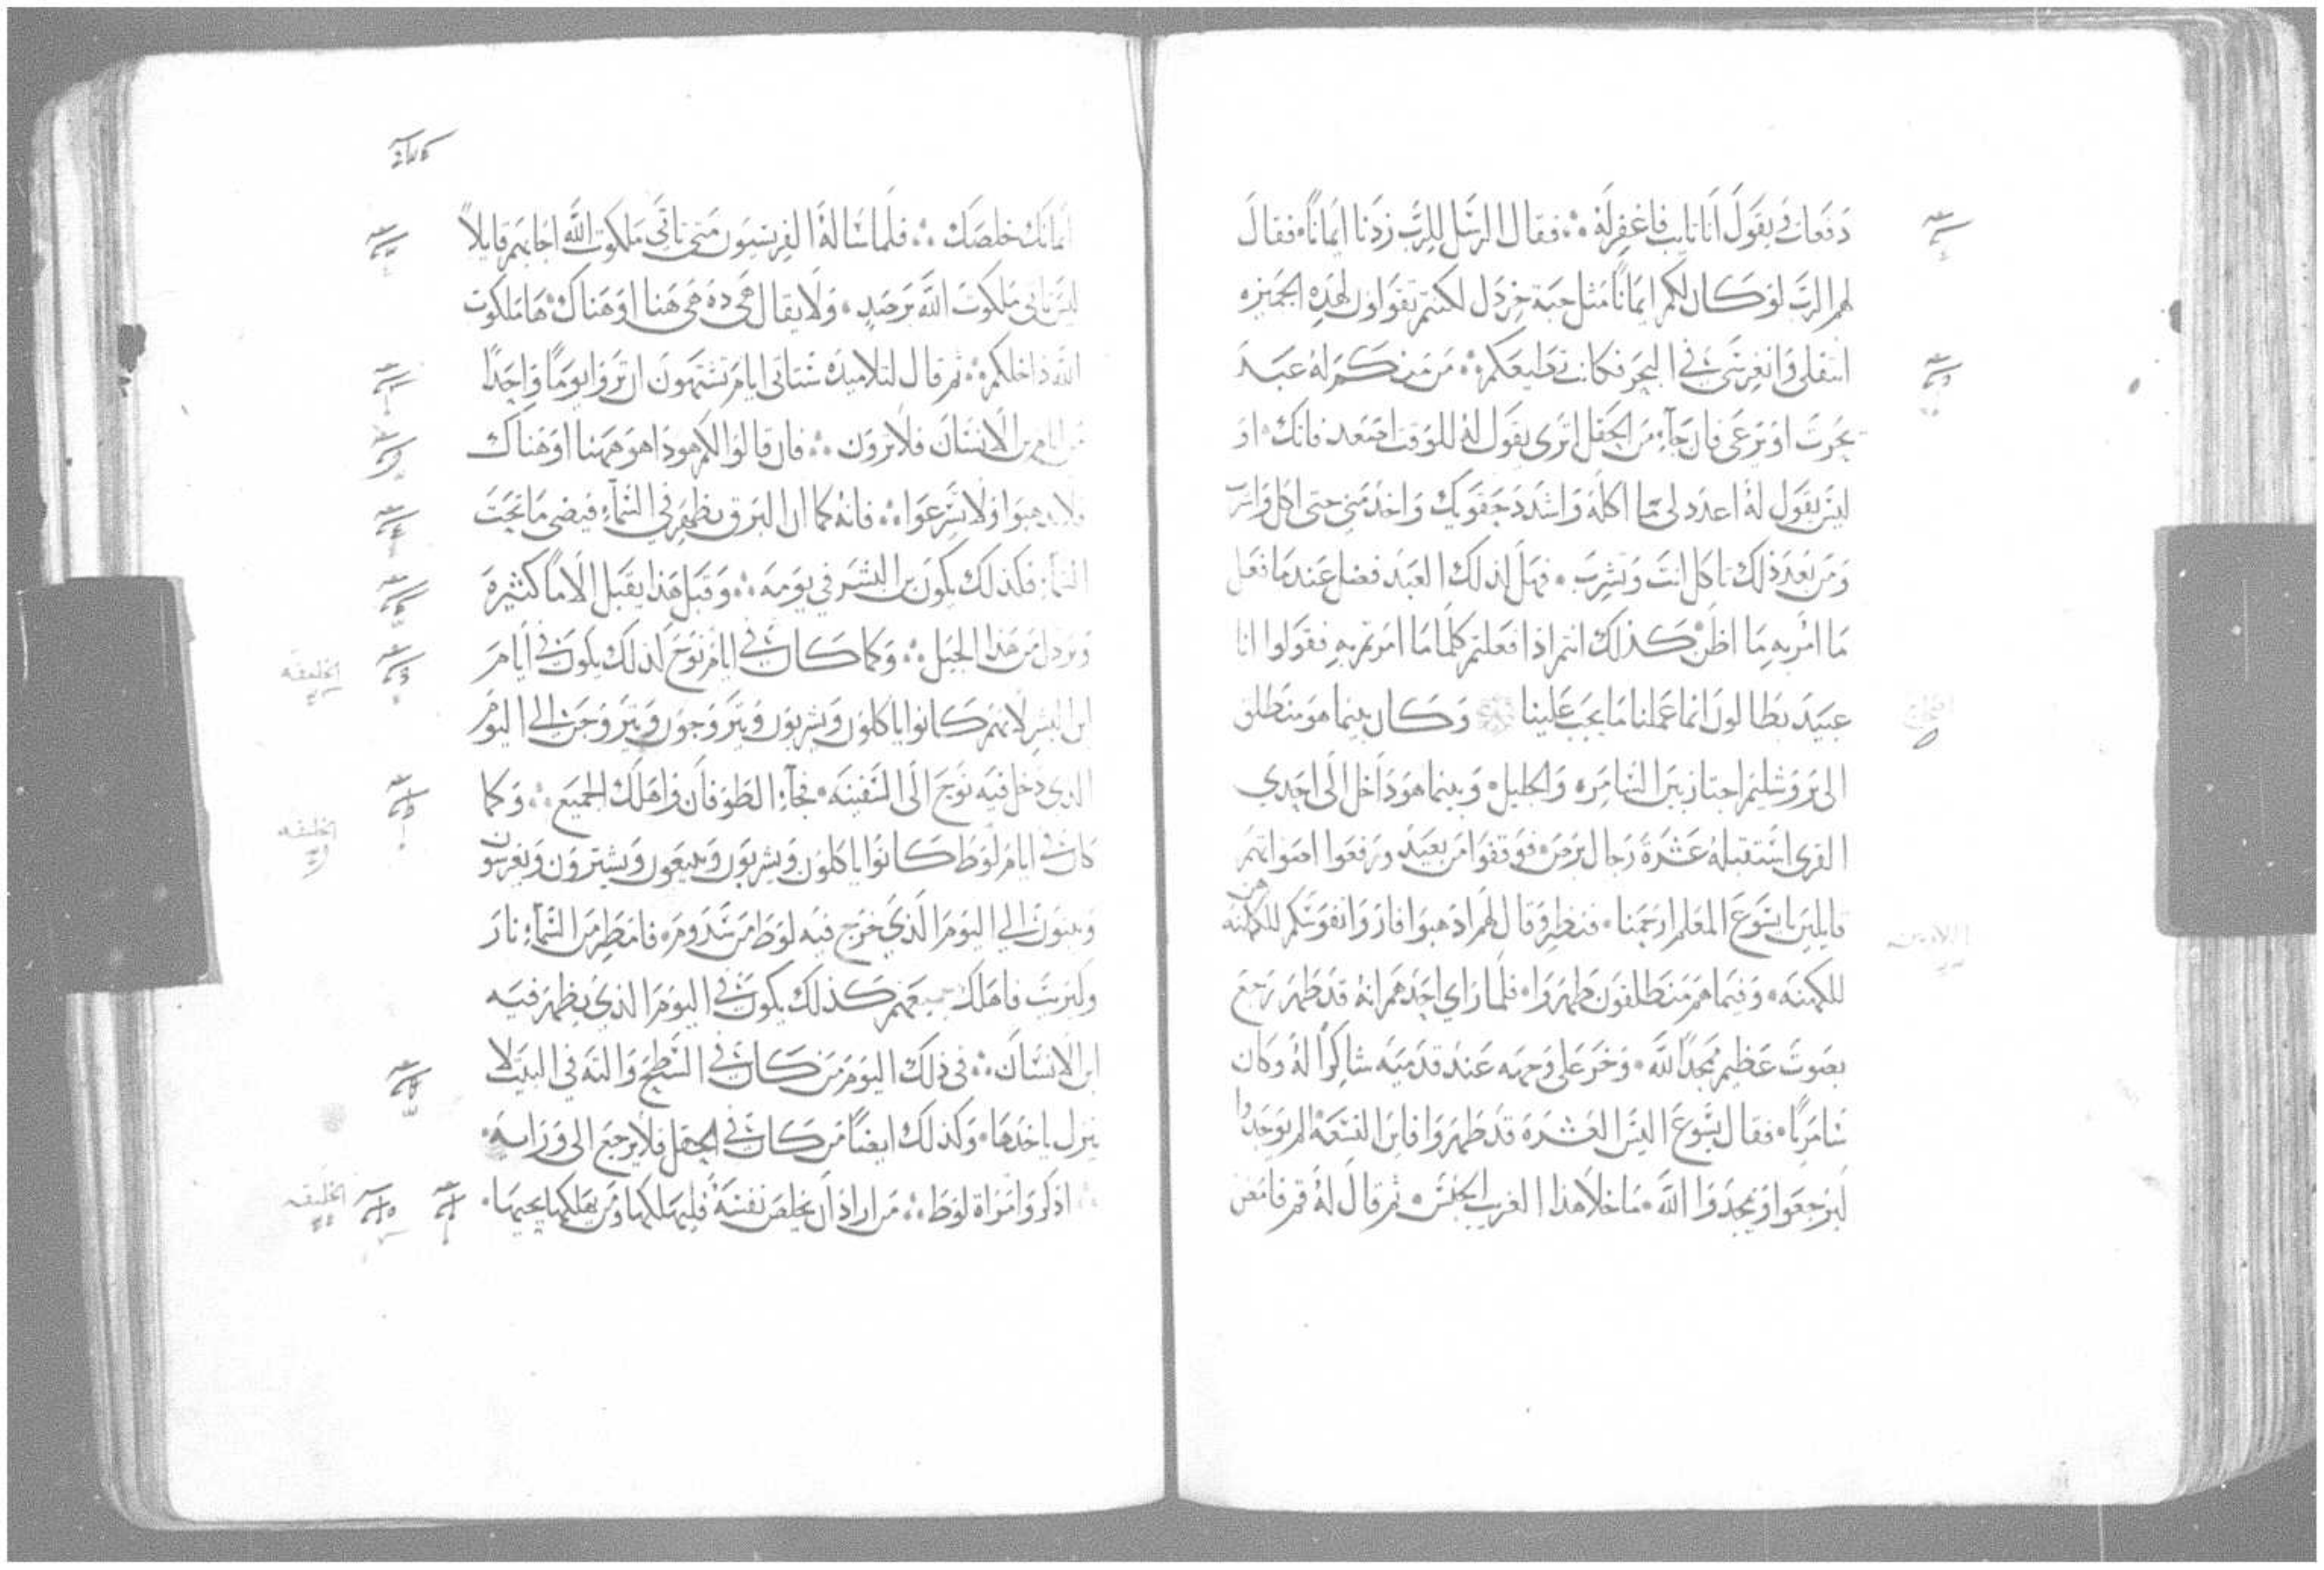 دفعات يقول أنا تايب فاغفر له ∴ فقال الرسل للرب زدنا ايماناً فقال
لهم الرب لو كان لكم ايماناً مثل حبة خردل لكنتم تقولون لهذه الجميزه
انتقلي وانغرسي في البحر فكانت تطيعكم ∴ من منكم له عبد
يحرث او يرعى فان جآء من الحقل اترى يقول له للوقت اصعد فاتك او
ليس يقول له اعدد لي ما اكله واشدد حقويك واخدمني حتى اكل واشرب
ومن بعد ذلك تاكل انت وتشرب فهل لذلك العبد فضل عند ما فعل
ما امر به ما اظن كذلك انتم اذا فعلتم كلما امرتم به فقولوا انا
عبيد بطالون انما عملنا ما يجب علينا وكان بينما هو منطلق
الى يروشليم اجتاز بين السامره والجليل وبينما هو داخل الى احدي
القرى استقبله عشرة رجال برص فوقفوا من بعيد ورفعوا اصواتهم
قايلين يايسوع المعلم ارحمنا فنظر وقال لهم اذهبوا فاروا نفوسكم للكهنه
للكهنه وفيما هم منطلقون طهروا فلما راي احدهم انه قد طهر رجع
بصوت عظيم ممجداً لله وخر على وجهه عند قدميه شاكراً له وكان
سامرياً فقال يسوع اليس العشرة قد طهروا فاين التسعة الم يوجدوا
ليرجعوا ويمجدوا الله ما خلا هذا الغريب الجنس ثم قال له قم فامض
ايمانك خلصك ∴ فلما ساله الفريسيون متى تاتي ملكوت الله اجابهم قايلاً
ليس تاتي ملكوت الله برصد ولا يقال هي ده هي هنا او هناك ها ملكوت
الله داخلكم ∴ ثم قال لتلاميده ستاتي ايام تشتهون ان تروا يوماً واحداً
من ايام بن الانسان فلا ترون ∴ فان قالوا لكم هوذا هو ههنا او هناك
فلا تدهبوا ولا تسرعوا ∴ فانه كما ان البرق يظهر في السمآء فيضى ما تحت
السمآء فكذلك يكون بن البشر في يومه ∴ وقبل هذا يقبل الاماً كثيرة
ويرذل من هذا الجيل ∴ وكما كان في ايام نوح كذلك يكون في أيام
ابن البشر لانهم كانوا ياكلون ويشربون ويتزوجون ويتزوجن الى اليوم
الذي دخل فيه نوح الى السفينه فجآء الطوفان واهلك الجميع ∴ وكما
كان في ايام لوط كانوا ياكلون ويشربون ويبيعون ويشترون ويغرسون
ويبنون الى اليوم الذي خرج فيه لوط من سدوم فامطر من السمآء نار
وكبريت فاهلك جميعهم كذلك يكون في اليوم الذي يظهر فيه
ابن الانسان ∴ في ذلك اليوم من كان في السطح والته في البيت لا
ينزل ياخدها وكذلك ايضاً من كان في الحقل فلا يرجع الى ورايه
اذكروا امراة لوط ∴ من اراد ان يخلص نفسه فليهلكها ومن يهلكها يحييها
الخليقه
الخليقه
الخليقه